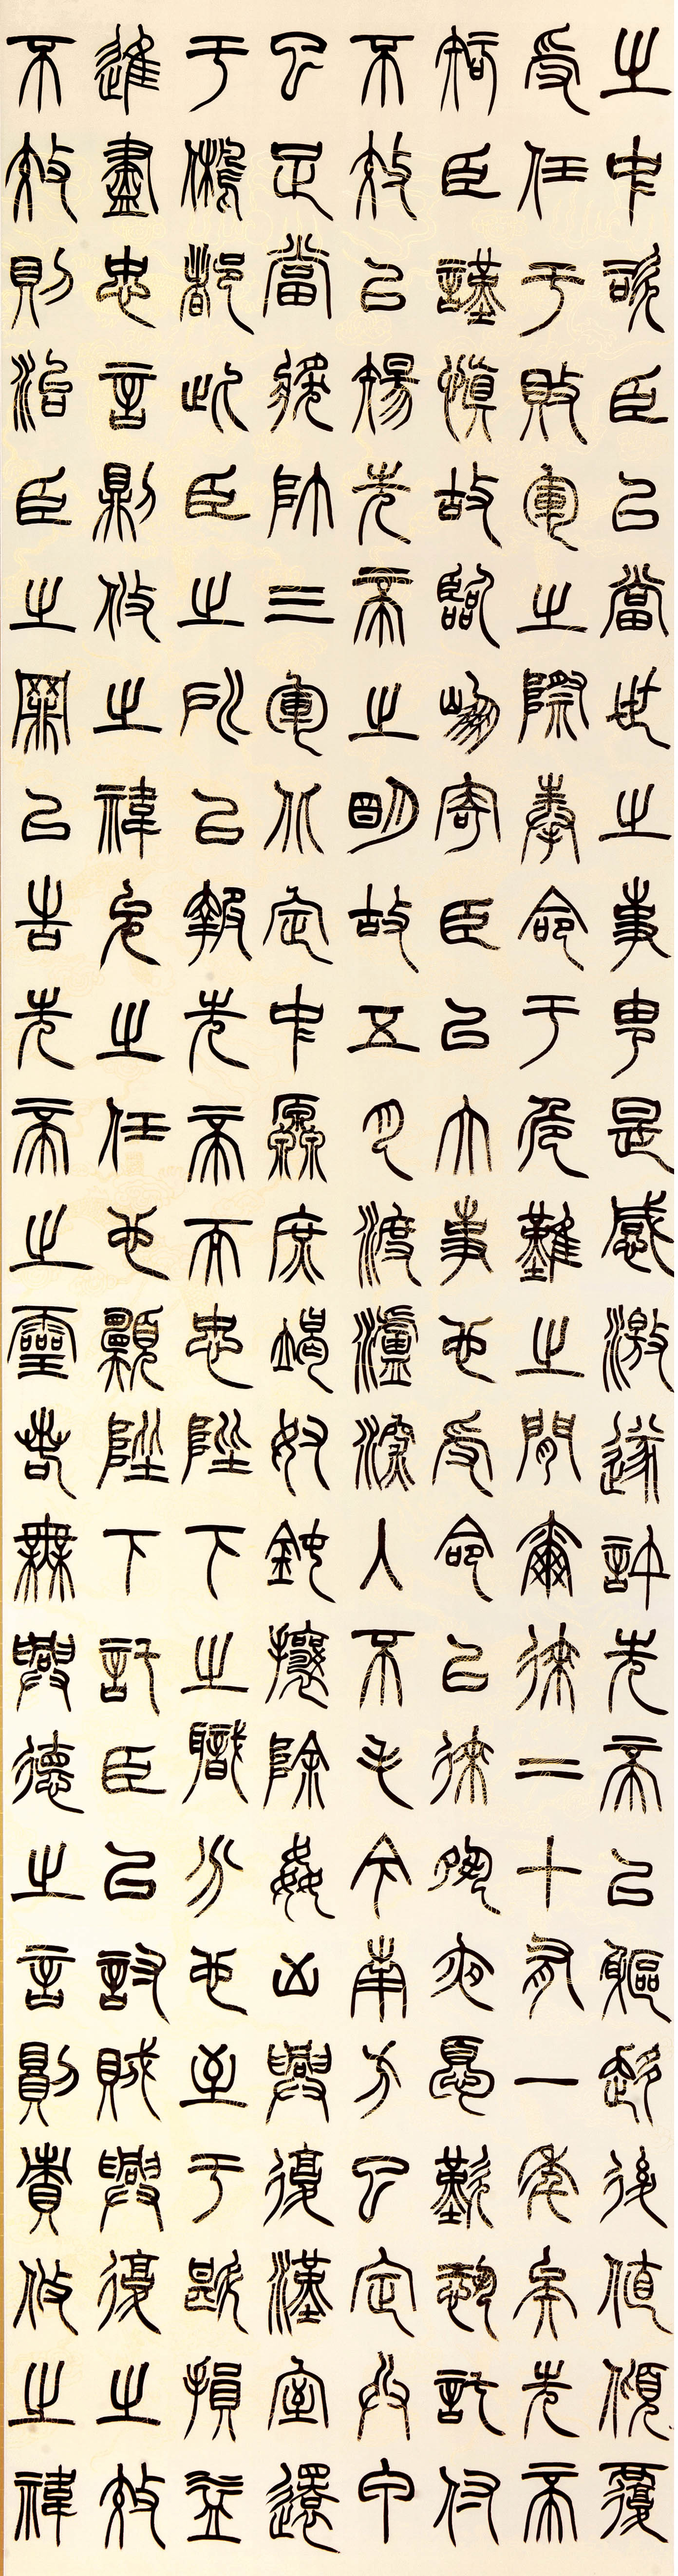 之中諮臣以當世之事由是感激遂許先帝以驅馳後值傾覆
受任于敗軍之際奉命于危難之間爾徠二十有一年矣先帝
知臣謹慎故臨崩寄臣以大事也受命以徠夙夜憂歎恐託付
不效以傷先帝之明故五月渡瀘深入不毛今南方已定兵甲
已足當獎帥三軍北定中原庶竭駑鈍攘除姦凶興復漢室還
于舊都此臣之所以報先帝而忠陛下之職分也至于斟損益
進盡忠言則攸之禕允之任也願陛下託臣以討賊興復之效
不效則治臣之罪以告先帝之靈若無興德之言則責攸之禕